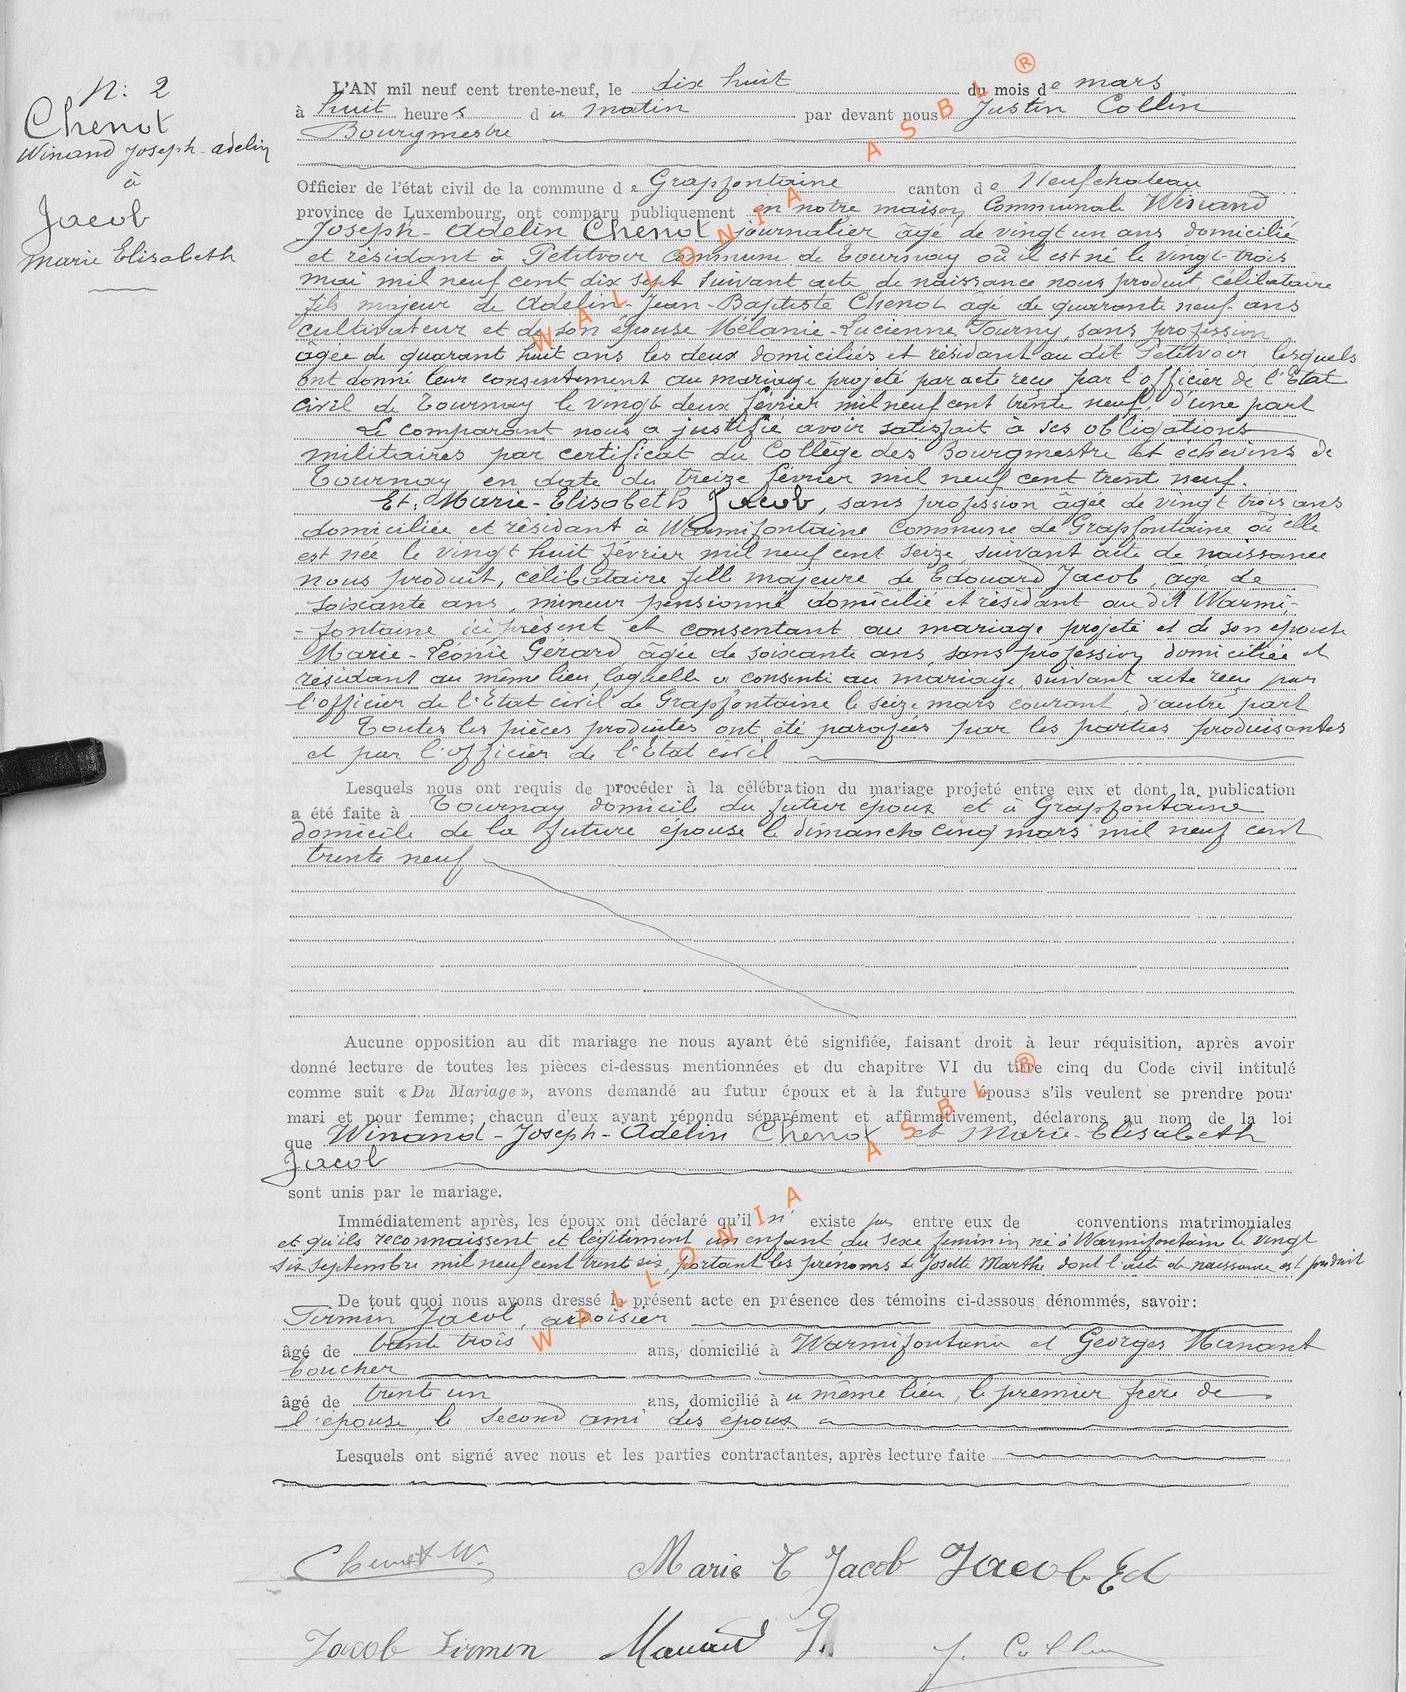 N: 2
Chenot
Winand Joseph-Adelin
à
Jacob
Marie Elisabeth
L'AN mil neuf cent trente-neuf, le dix huit du mois de mars
à huit heures du matin par devant nous Justin Collin
Bourgmestre
Officier de l'état civil de la commune de Grapfontaine canton de Neufchateau
province de Luxembourg, ont comparu publiquement en notre maison Communale Winand
Joseph-Adelin Chenot journalier âgé de vingt un ans domicilié
et résidant à Petitvoir Commune de Tournay où il est né le vingt-trois
mai mil neuf cent dix sept suivant acte de naissance nous produit célibataire
fils majeur de Adelin-Jean-Baptiste Chenot agé de quarante neuf ans
cultivateur et de son épouse Mélanie-Lucienne Tourny, sans profession
âgée de quarant huit ans les deux domiciliés et résidant au dit Petitvoir lesquels
ont donné leur consentement au mariage projeté par acte reçu par l'officier de l'Etat
civil de Tournay le vingt deux février mil neuf cent trente neuf, d'une part
Le comparant nous a justifié avoir satisfait à ses obligations
militaires par certificat du Collège des Bourgmestre et échevins de
Tournay en date du treize février mil neuf cent trent neuf.
Et: Marie-Elisabeth Jacob, sans profession âgée de vingt trois ans
domiciliée et résidant à Warmifontaine Commune de Grapfontaine où elle
est née le vingt huit février mil neuf cent seize, suivant acte de naissance
nous produit, célibataire fille majeure de Edouard Jacob, âgé de
soixante ans, mineur pensionné domicilié et résidant au dit Warmi-
-fontaine ici présent et consentant au mariage projeté et de son épouse
Marie-Léonie Gérard âgée de soixante ans, sans profession domiciliée et
résidant au même lieu, laquelle a consenti au mariage, suivant acte reçu par
l'officier de l'Etat civil de Grapfontaine le seize mars courant, d'autre part
Toutes les pièces produites ont été parafées par les parties produisantes
et par l'officier de l'Etat civil
Lesquels nous ont requis de procéder à la célébration du mariage projeté entre eux et dont la publication
a été faite à Tournay domicile du futur époux et à Grapfontaine
domicile de la future épouse le dimanche cinq mars mil neuf cent
trente neuf
Aucune opposition au dit mariage ne nous ayant été signifiée, faisant droit à leur réquisition, après avoir
donné lecture de toutes les pièces ci-dessus mentionnées et du chapitre VI du titre cinq du Code civil intitulé
comme suit « Du Mariage », avons demandé au futur époux et à la future épouse s'ils veulent se prendre pour
mari et pour femme; chacun d'eux ayant répondu séparément et affirmativement, déclarons au nom de la loi
que Winand-Joseph-Adelin Chenot et Marie-Elisabeth
Jacob
sont unis par le mariage.
Immédiatement après, les époux ont déclaré qu'il n' existe pas entre eux de conventions matrimoniales
et qu'ils reconnaissent et légitiment un enfant du sexe feminin né à Warmifontaine le vingt
six septembre mil neuf cent trente six, portant les prénoms de Josette Marthe dont l'acte de naissance est produit
De tout quoi nous avons dressé le présent acte en présence des témoins ci-dessous dénommés, savoir:
Firmin Jacob, ardoisier
âgé de trente trois ans, domicilié à Warmifontaine et Georges Manant
boucher
âgé de trente un ans, domicilié à u même lieu, le premier frère de
l'épouse, le second ami des époux
Lesquels ont signé avec nous et les parties contractantes, après lecture faite
Chenot W.
Marie E Jacob
Jacob Ed
Jacob Firmin
Manand G.
J. Collin
WALLONIA ASBL ®
WALLONIA ASBL ®